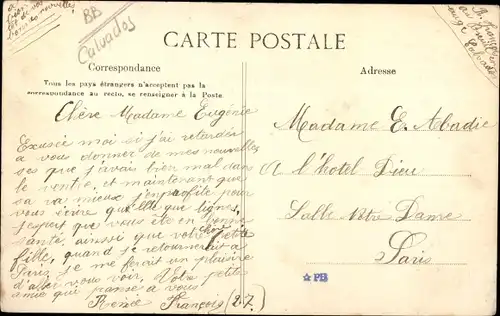 BB
Calvados
CARTE POSTALE
Correspondance
Tous les pays étrangers n'acceptent pas la
correspondance au recto, se renseigner à la Poste.
Adresse
Chère Madame Eugénie
Excusée moi si j'ai retarder
a vous donner de mes nouvelles
ses que j'avais bien mal dans
le ventre, et maintenant que
sa va mieux j'en profite pour
vous écrire quelle que lignes,
j'espert que vous ete en bonne
santé, aussie que votre chere petite
fille, quand je retournerait a
Paris je me ferait un plaisire
d'aller vous voir. Votre petite
amie qui panse a vous
Renée François (27)
Madame E. Abadie
a l'hotel Dieu
Salle Notre Dame
Paris
PB